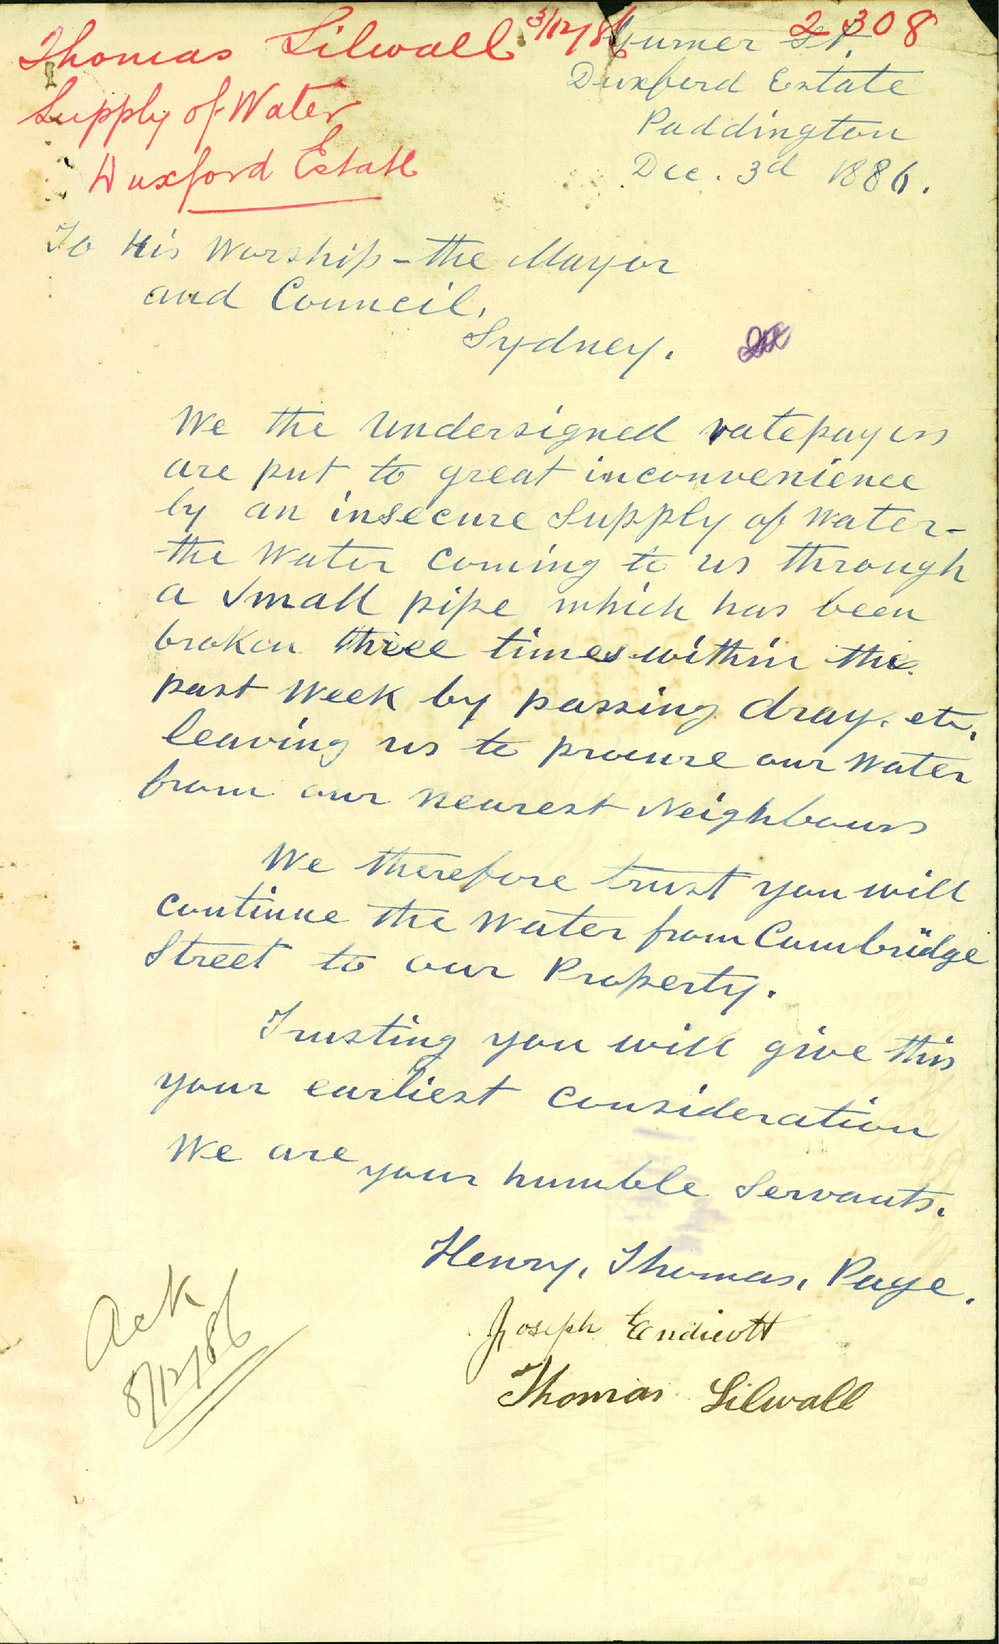 Thomas Silwall 3/12/86
2308
Supply of Water
Duxford Estate
Gurner St.
Duxford Estate
Paddington
Dec. 3d 1886.
To His Worship - the Mayor
and Council,
Sydney.
We the undersigned ratepayers
are put to great inconvenience
by an insecure Supply of Water -
the Water coming to us through
a Small pipe which has been
broken three times within the
past Week by passing dray. etc,
leaving us to procure our Water
from our nearest Neighbours
We therefore trust you will
continue the Water from Cambridge
Street to our Property.
Trusting you will give this
your earliest consideration
We are
your humble Servants.
Henry, Thomas, Page.
Joseph Endicott
Thomas Silwall
Ack
8/12/86